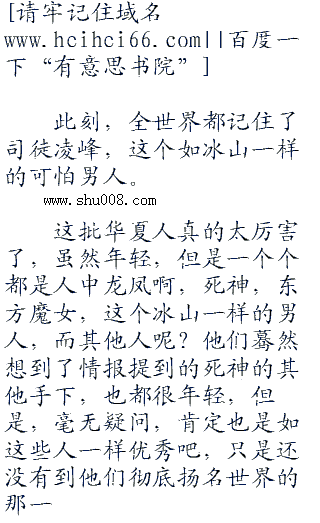 [请牢记住域名
www.hcihci66.com||百度一
下“有意思书院”]
此刻，全世界都记住了
司徒凌峰，这个如冰山一样
的可怕男人。
www.shu008.com
这批华夏人真的太厉害
了，虽然年轻，但是一个个
都是人中龙凤啊，死神，东
方魔女，这个冰山一样的男
人，而其他人呢？他们蓦然
想到了情报提到的死神的其
他手下，也都很年轻，但
是，毫无疑问，肯定也是如
这些人一样优秀吧，只是还
没有到他们彻底扬名世界的
那一